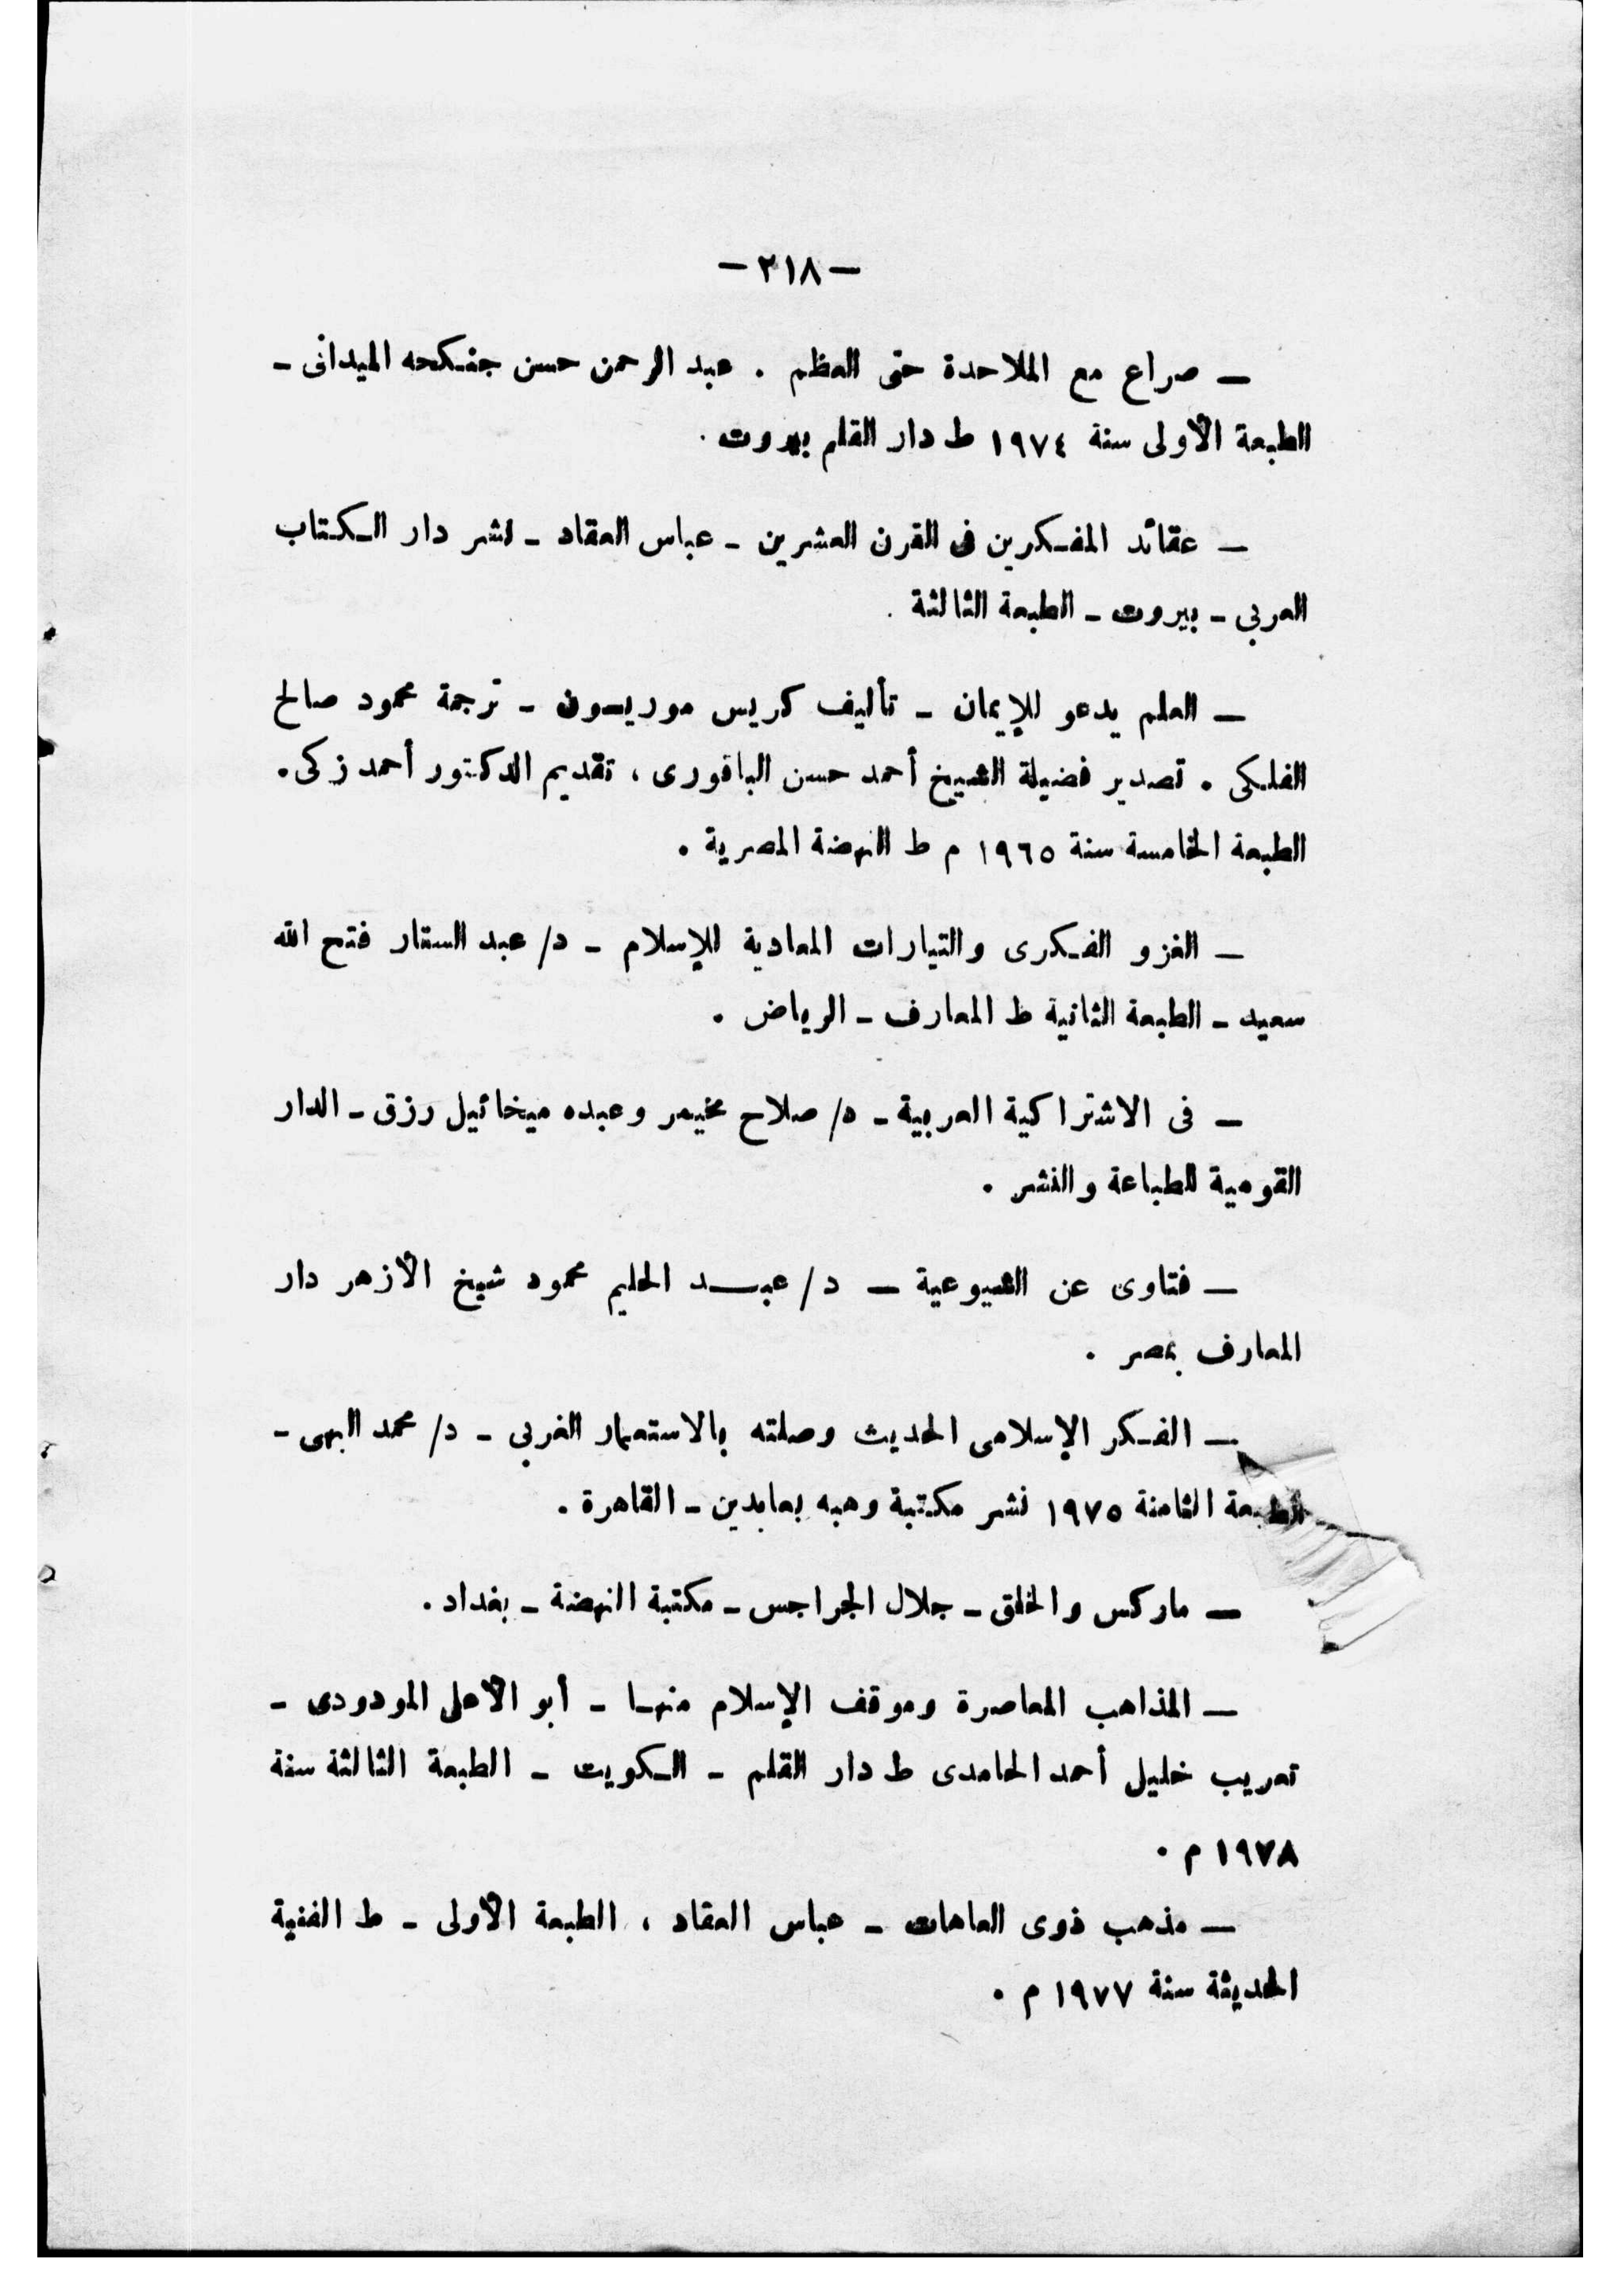 — ٢١٨ —
— صراع مع الملاحدة حتى العظم . عبد الرحمن حسن جنكحه الميدانى -
الطبعة الأولى سنة ١٩٧٤ ط دار القلم بيروت .
— عقائد المفكرين فى القرن العشرين - عباس العقاد - نشر دار الكتاب
العربي - بيروت - الطبعة الثالثة .
— العلم يدعو للإيمان - تأليف كريس موريسون - ترجمة محمود صالح
الفلكى . تصدير فضيلة الشيخ أحمد حسن الباقورى ، تقديم الدكتور أحمد زكى .
الطبعة الخامسة سنة ١٩٦٥ م ط النهضة المصرية .
— الغزو الفكرى والتيارات المعادية للإسلام - د/ عبد الستار فتح الله
سعيد - الطبعة الثانية ط المعارف - الرياض .
— فى الاشتراكية العربية - د/ صلاح مخيمر وعبده ميخائيل رزق - الدار
القومية للطباعة والنشر .
— فتاوى عن الشيوعية — د/ عبد الحليم محمود شيخ الأزهر دار
المعارف بمصر .
— الفكر الإسلامى الحديث وصلته بالاستعمار الغربي - د/ محمد البهى -
الطبعة الثامنة ١٩٧٥ نشر مكتبة وهبه بعابدين - القاهرة .
— ماركس والخلق - جلال الجراجس - مكتبة النهضة - بغداد .
— المذاهب المعاصرة وموقف الإسلام منها - أبو الأعلى المودودى -
تعريب خليل أحمد الحامدى ط دار القلم - الكويت - الطبعة الثالثة سنة
١٩٧٨ م .
— مذهب ذوى العاهات - عباس العقاد ، الطبعة الأولى - ط الفنية
الحديثة سنة ١٩٧٧ م .